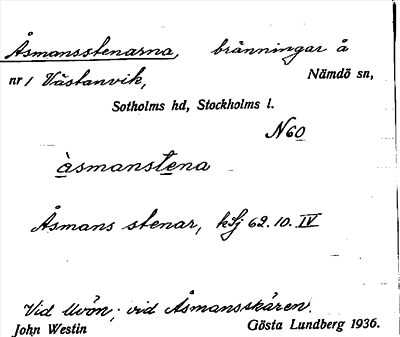 Åsmansstenarna, bränningar å
nr 1 Västanvik, Nämdö sn,
Sotholms hd, Stockholms l.
N60
àsmanstena
Åsmans stenar, kSj 62.10. IV
Vid Uvön; vid Åsmansskären.
John Westin Gösta Lundberg 1936.